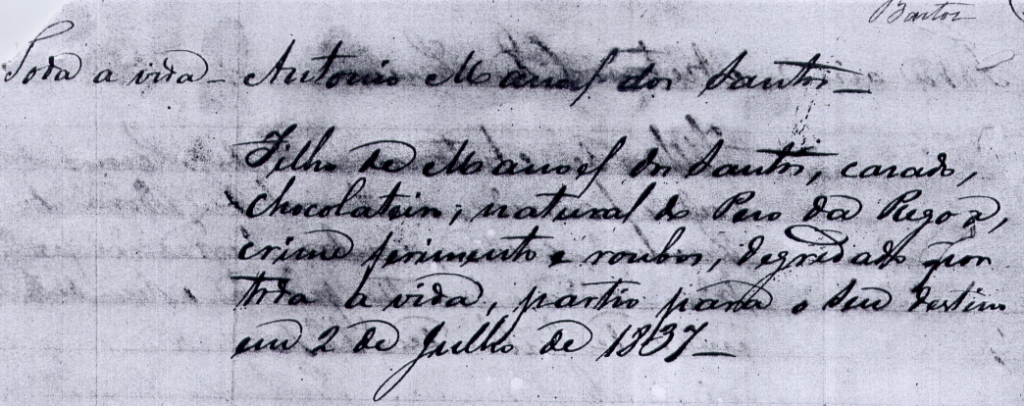 Toda a vida – Antonio Manoel dos Santos –
Filho de Manoel dos Santos, casado,
chocolateiro, natural do Pezo da Regoa,
crime ferimento e roubos, degredado por
toda a vida, partio para o seu destino
em 2 de Julho de 1837 –